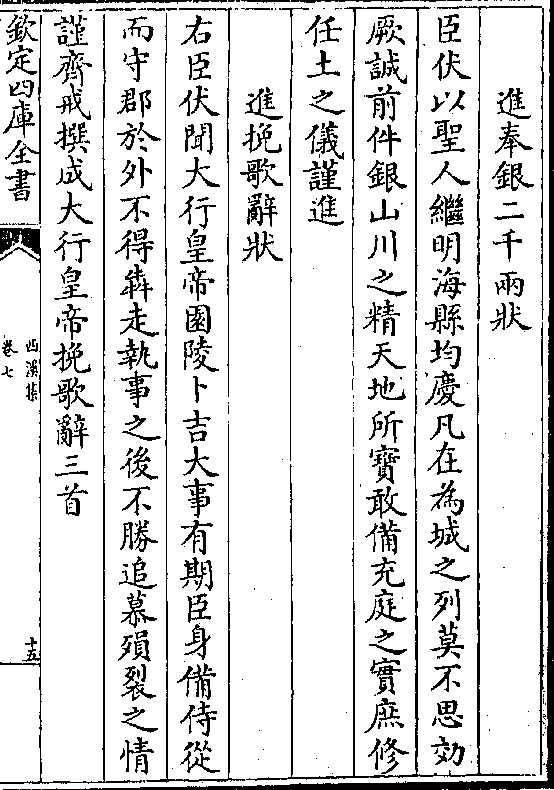 進奉銀二千兩狀
臣伏以聖人繼明海縣均慶凡在為城之列莫不思効
厥誠前件銀山川之精天地所寶敢備充庭之實庶修
任土之儀謹進
進挽歌辭狀
右臣伏聞大行皇帝園陵卜吉大事有期臣身備侍從
而守郡於外不得犇走執事之後不勝追慕殞裂之情
謹齊戒撰成大行皇帝挽歌辭三首
欽定四庫全書
西溪集
卷七
十五